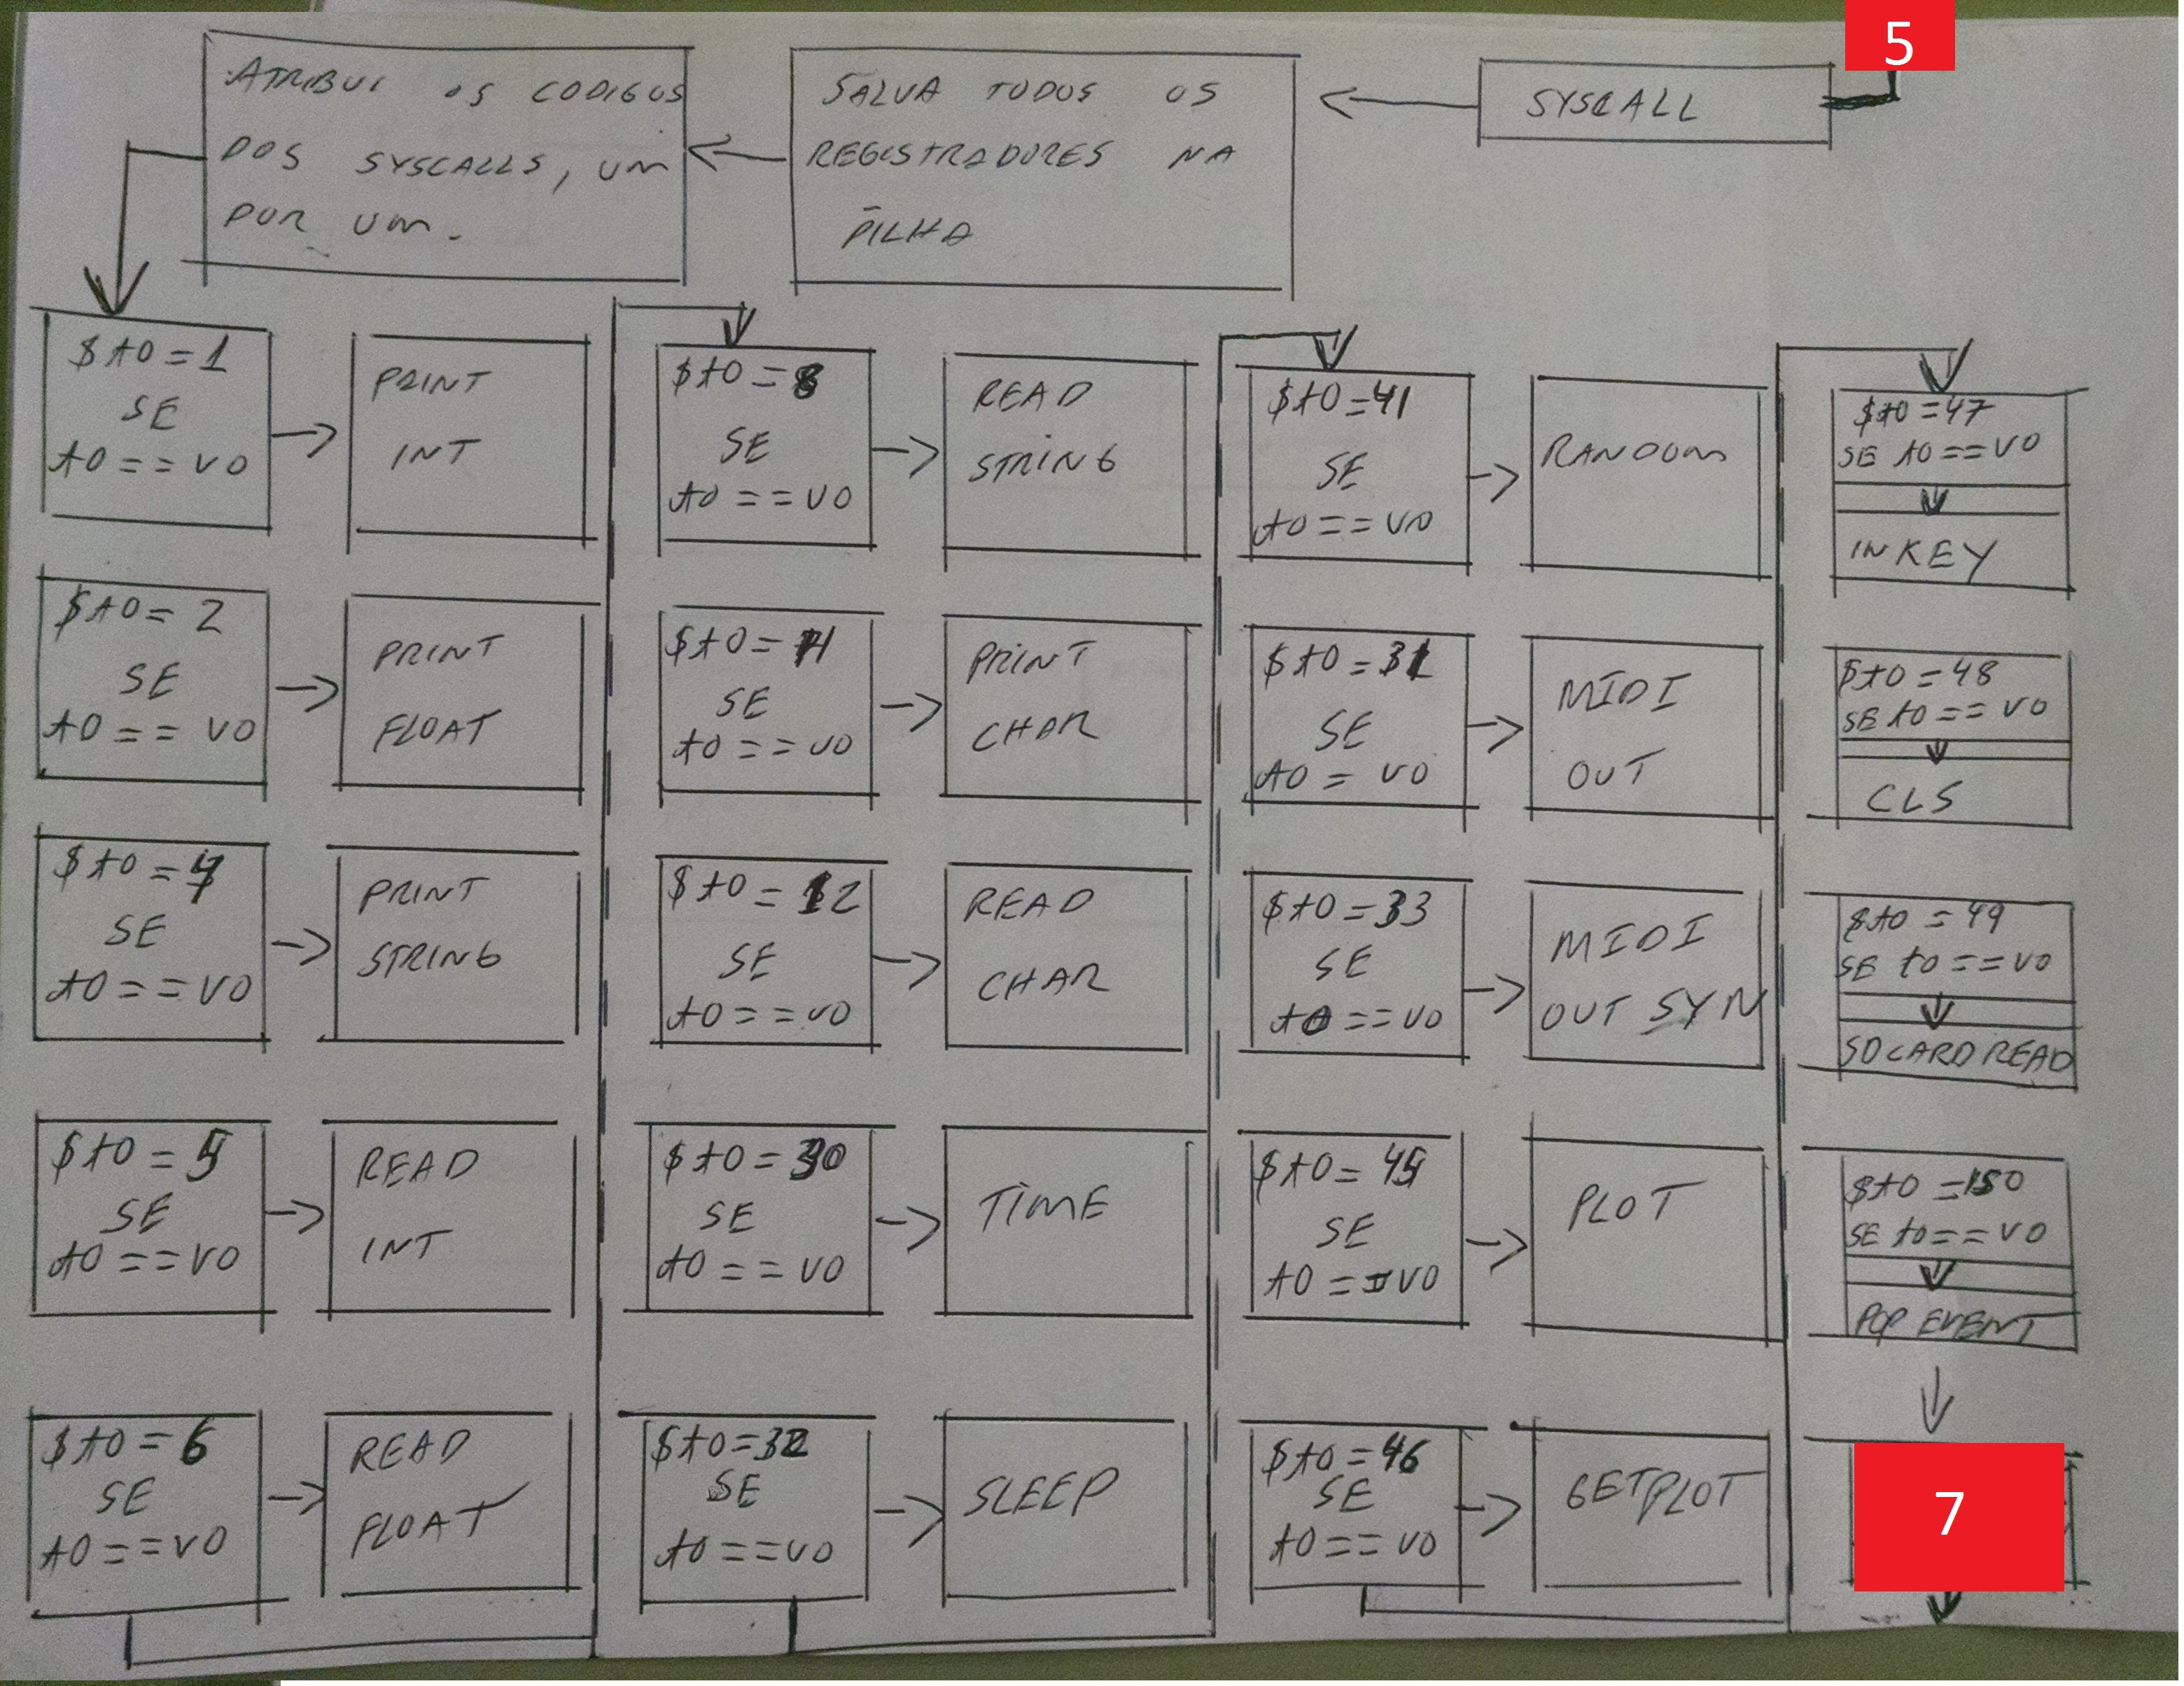 5
SYSCALL
SALVA TODOS OS
REGISTRADORES NA
PILHA
ATRIBUI OS CODIGOS
DOS SYSCALLS, UM
POR UM.
$t0 = 1
SE
t0 == V0
PRINT
INT
$t0 = 2
SE
t0 == V0
PRINT
FLOAT
$t0 = 4
SE
t0 == V0
PRINT
STRING
$t0 = 5
SE
t0 == V0
READ
INT
$t0 = 6
SE
t0 == V0
READ
FLOAT
$t0 = 8
SE
t0 == V0
READ
STRING
$t0 = 11
SE
t0 == V0
PRINT
CHAR
$t0 = 12
SE
t0 == V0
READ
CHAR
$t0 = 30
SE
t0 == V0
TIME
$t0 = 32
SE
t0 == V0
SLEEP
$t0 = 41
SE
t0 == V0
RANDOM
$t0 = 31
SE
t0 = V0
MIDI
OUT
$t0 = 33
SE
t0 == V0
MIDI
OUT SYN
$t0 = 45
SE
t0 == V0
PLOT
$t0 = 46
SE
t0 == V0
GETPLOT
$t0 = 47
SE t0 == V0
INKEY
$t0 = 48
SE t0 == V0
CLS
$t0 = 49
SE t0 == V0
SD CARD READ
$t0 = 150
SE t0 == V0
POP EVENT
7